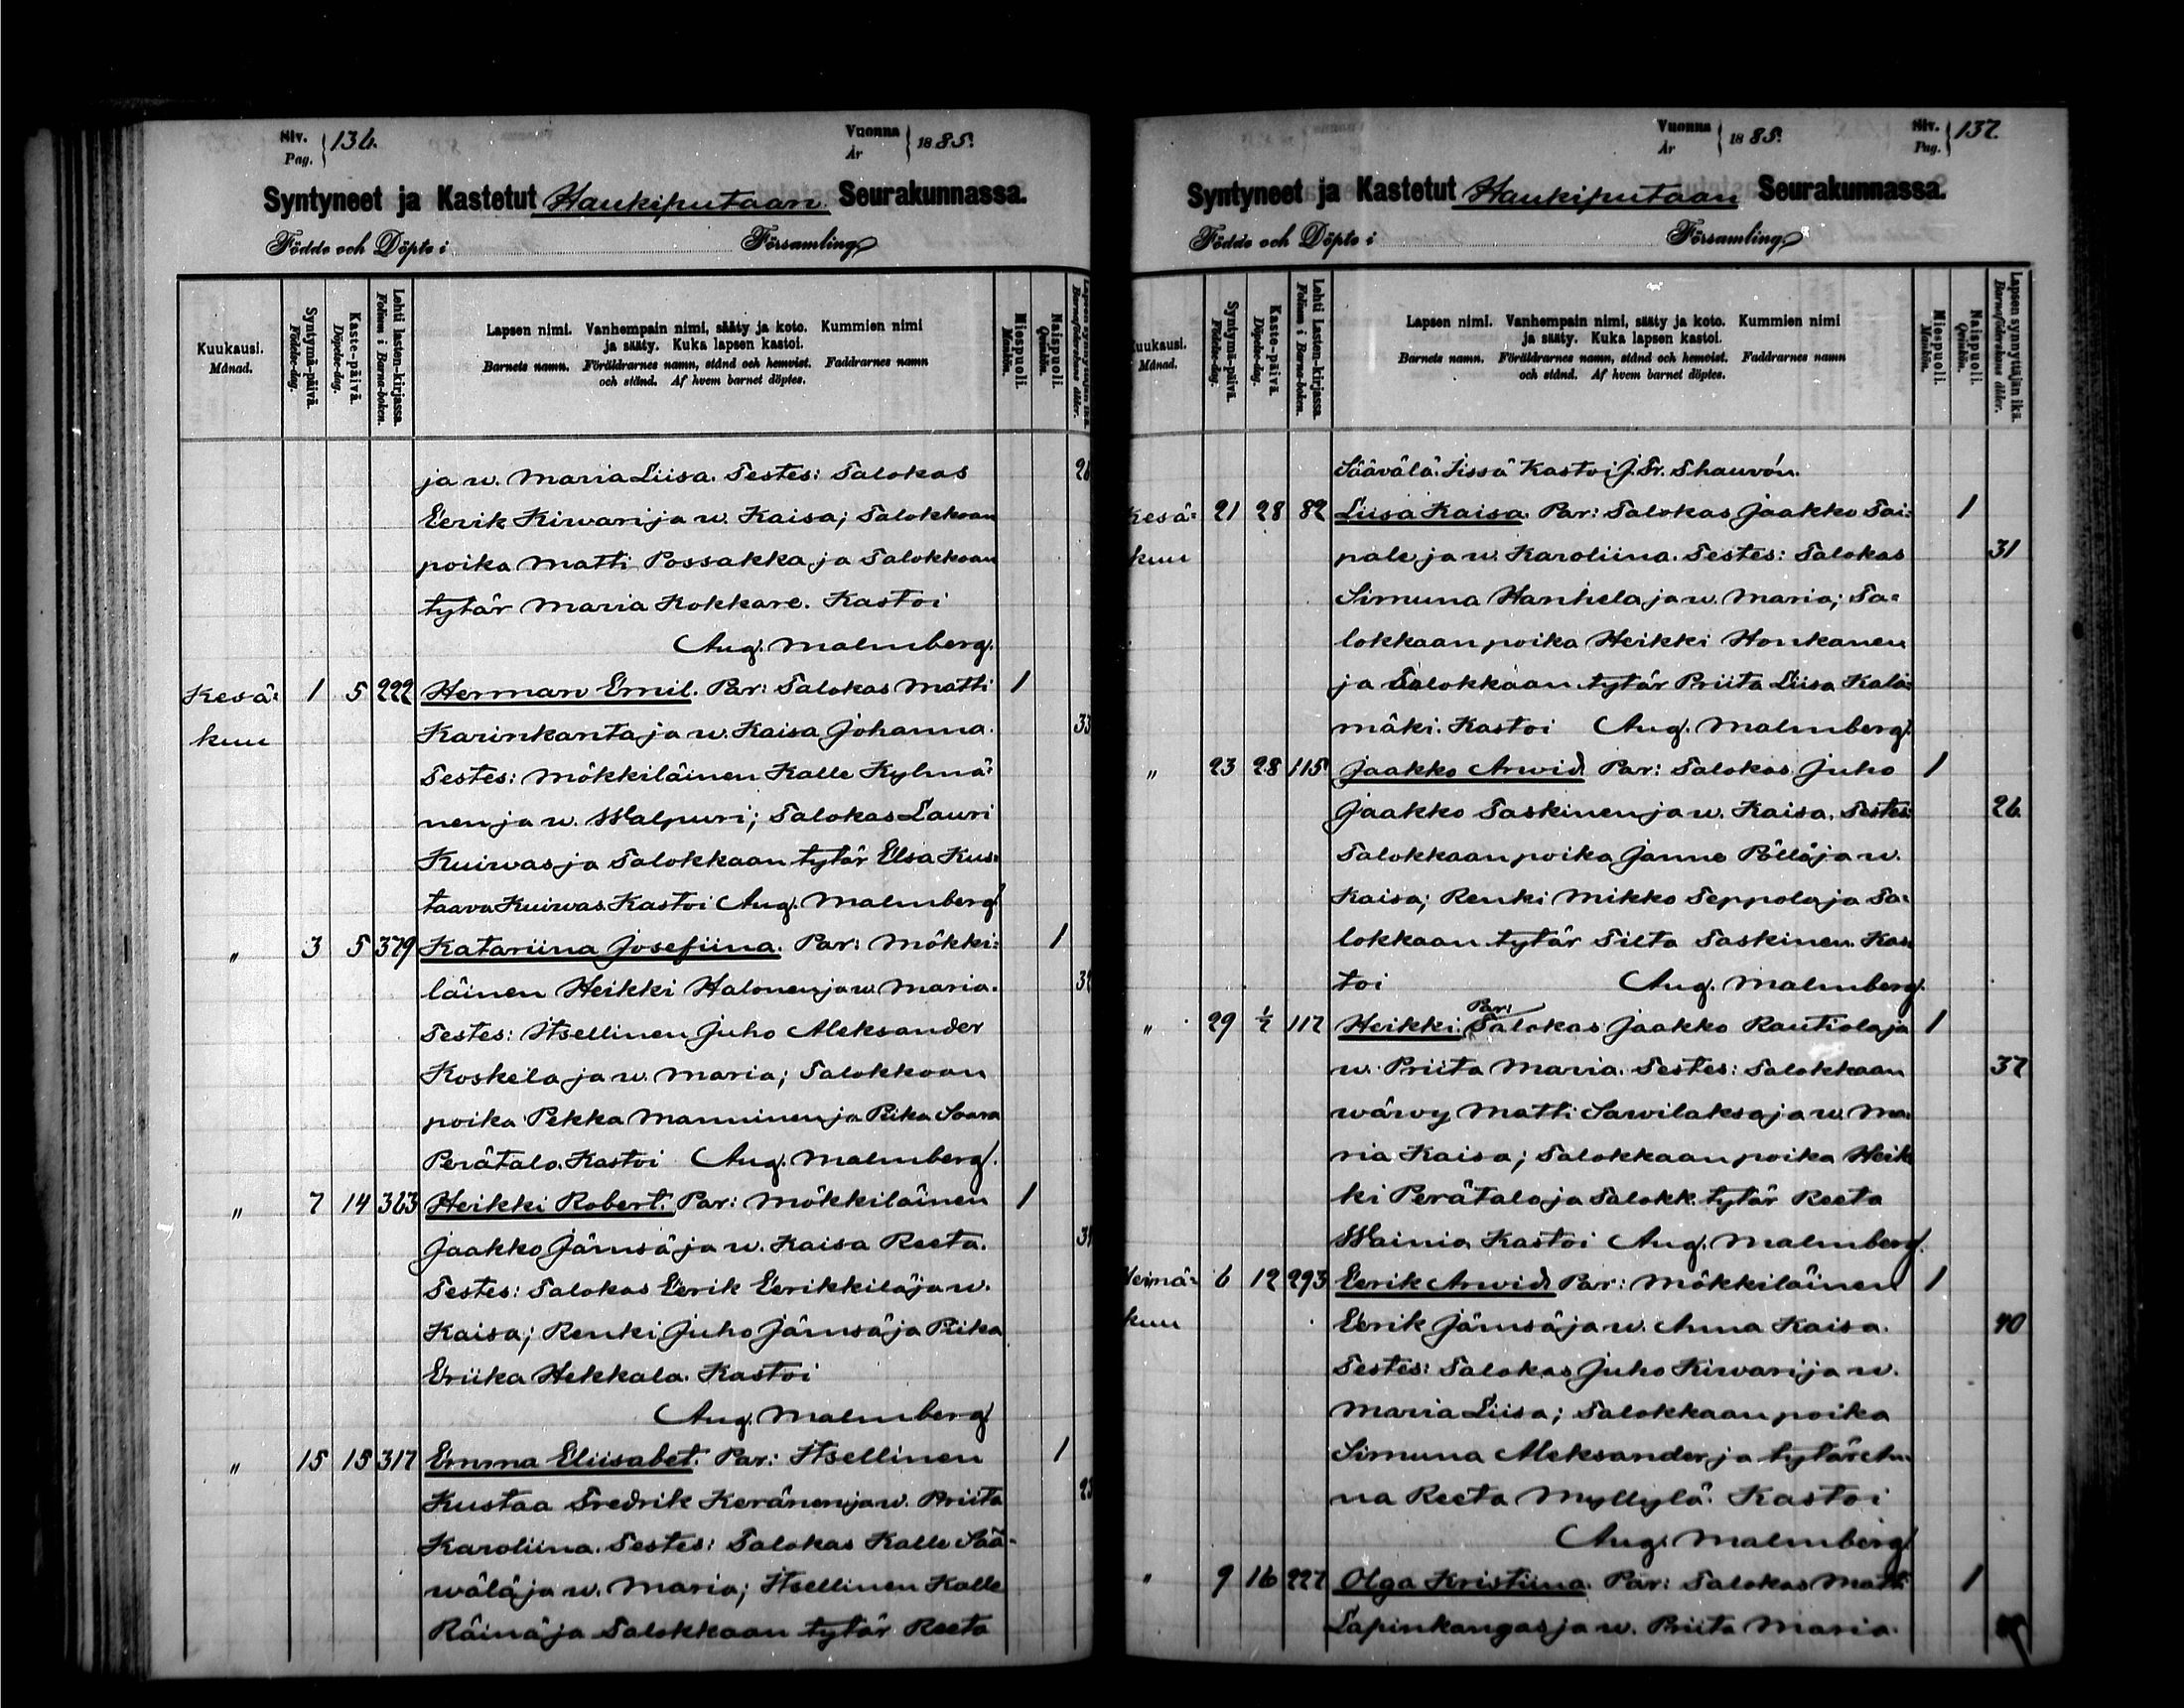 Siv. Pag. 136.
Vuonna År 1885.
Syntyneet ja Kastetut Haukiputaan Seurakunnassa.
Födde och Döpte i Församling
Kuukausi. Månad.
Syntymä-päivä. Födelse-dag.
Kaste-päivä. Döpelse-dag.
Lehti lasten-kirjassa. Folium i Barna-boken.
Lapsen nimi. Vanhempain nimi, sääty ja koto. Kummien nimi
ja sääty. Kuka lapsen kastoi.
Barnets namn. Föräldrarnes namn, stånd och hemvist. Faddrarnes namn
och stånd. Af hvem barnet döptes.
Miespuoli. Mankön.
Naispuoli. Qvinkön.
Lapsen synnyttäjän ikä. Barnaföderskans ålder.
ja w. Maria Liisa. Testes: Talokas 26
Eerik Kiwari ja w. Kaisa; Talokkaan
poika Matti Possakka ja Talokkaan
tytär Maria Kokkare. Kastoi
Aug. Malmberg.
Kesä= 1 5 222 Herman Emil. Par: Talokas Matti 1
kuu Karinkanta ja w. Kaisa Johanna. 33
Testes: Mökkiläinen Kalle Kylmä=
nen ja w. Walpuri; Talokas Lauri
Kuiwas ja Talokkaan tytär Elsa Kus=
taava Kuiwas. Kastoi Aug. Malmberg
" 3 5 379 Katariina Josefiina. Par: Mökki= 1
läinen Heikki Halonen ja w. Maria.
Testes: Itsellinen Juho Aleksander
Koskela ja w. Maria; Talokkaan
poika Pekka Manninen ja Piika Saara
Perätalo. Kastoi Aug. Malmberg.
" 7 14 363 Heikki Robert. Par: Mökkiläinen 1
Jaakko Jämsä ja w. Kaisa Reeta.
Testes: Talokas Eerik Eerikkilä ja w.
Kaisa; Renki Juho Jämsä ja Piika
Eriika Hekkala. Kastoi
Aug. Malmberg
" 15 15 317 Emma Eliisabet. Par: Itsellinen 1
Kustaa Fredrik Keränen ja w. Priita 23
Karoliina. Testes: Talokas Kalle Sää-
wälä ja w. Maria; Itsellinen Kalle
Räinä ja Talokkaan tytär Reeta
Vuonna År 1885.
Siv. Pag. 137.
Syntyneet ja Kastetut Haukiputaan Seurakunnassa.
Födde och Döpte i Församling
Kuukausi. Månad.
Syntymä-päivä. Födelse-dag.
Kaste-päivä. Döpelse-dag.
Lehti lasten-kirjassa. Folium i Barna-boken.
Lapsen nimi. Vanhempain nimi, sääty ja koto. Kummien nimi
ja sääty. Kuka lapsen kastoi.
Barnets namn. Föräldrarnes namn, stånd och hemvist. Faddrarnes namn
och stånd. Af hvem barnet döptes.
Miespuoli. Mankön.
Naispuoli. Qvinkön.
Lapsen synnyttäjän ikä. Barnaföderskans ålder.
Säävälä. Iissä Kastoi J. Fr. Thauvón.
Kesä= 21 28 82 Liisa Kaisa. Par: Talokas Jaakko Tai= 1
kuu pale ja w. Karoliina. Testes: Talokas 31
Simuna Hanhela ja w. Maria; Ta=
lokkaan poika Heikki Honkanen
ja Talokkaan tytär Priita Liisa Kala=
mäki. Kastoi Aug. Malmberg.
" 23 28 115 Jaakko Arwid. Par: Talokas Juho 1
Jaakko Taskinen ja w. Kaisa. Testes: 26
Talokkaan poika Janne Pöllä ja w.
Kaisa; Renki Mikko Seppola ja Ta=
lokkaan tytär Tilta Taskinen. Kas=
toi Aug. Malmberg.
" 29 1/7 117 Heikki. Par: Talokas Jaakko Rautiola ja 1
w. Priita Maria. Testes: Talokkaan 37
wäwy Matti Sawilaksa ja w. Ma=
ria Kaisa; Talokkaan poika Heik=
ki Perätalo ja Talokk. tytär Reeta
Wainio. Kastoi Aug. Malmberg.
Heinä= 6 12 293 Eerik Arwid. Par: Mökkiläinen 1
kuu Eerik Jämsä ja w. Anna Kaisa. 40
Testes: Talokas Juho Kiwari ja w.
Maria Liisa; Talokkaan poika
Simuna Aleksander ja tytär An=
na Reeta Myllylä. Kastoi
Aug. Malmberg
" 9 16 227 Olga Kristiina. Par: Talokas Matti 1
Lapinkangas ja w. Priita Maria.